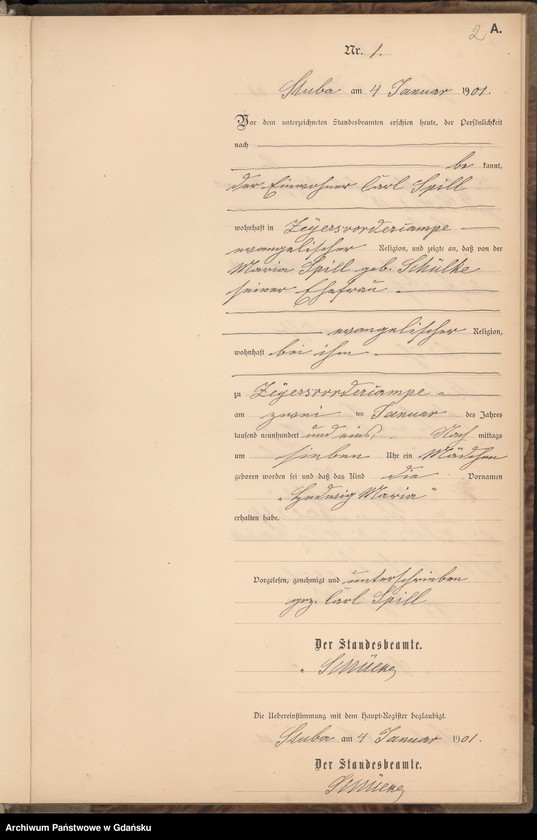 2 A.
Nr. 1.
Stuba am 4 Januar 1901.
Vor dem unterzeichneten Standesbeamten erschien heute, der Persönlichkeit
nach
be kannt,
der Einwohner Carl Spill
wohnhaft in Zeyersvordercampe
evangelischer Religion, und zeigte an, daß von der
Maria Spill geb. Schülke
seiner Ehefrau
evangelischer Religion,
wohnhaft bei ihm
zu Zeyersvordercampe
am zwei ten Januar des Jahres
tausend neunhundert und eins, Nach mittags
um sieben Uhr ein Mädchen
geboren worden sei und daß das Kind die Vornamen
„Hedwig Maria"
erhalten habe.
Vorgelesen, genehmigt und unterschrieben
gez. Carl Spill
Der Standesbeamte.
Die Uebereinstimmung mit dem Haupt-Register beglaubigt.
Stuba am 4 Januar 1901.
Der Standesbeamte.
Archiwum Państwowe w Gdańsku